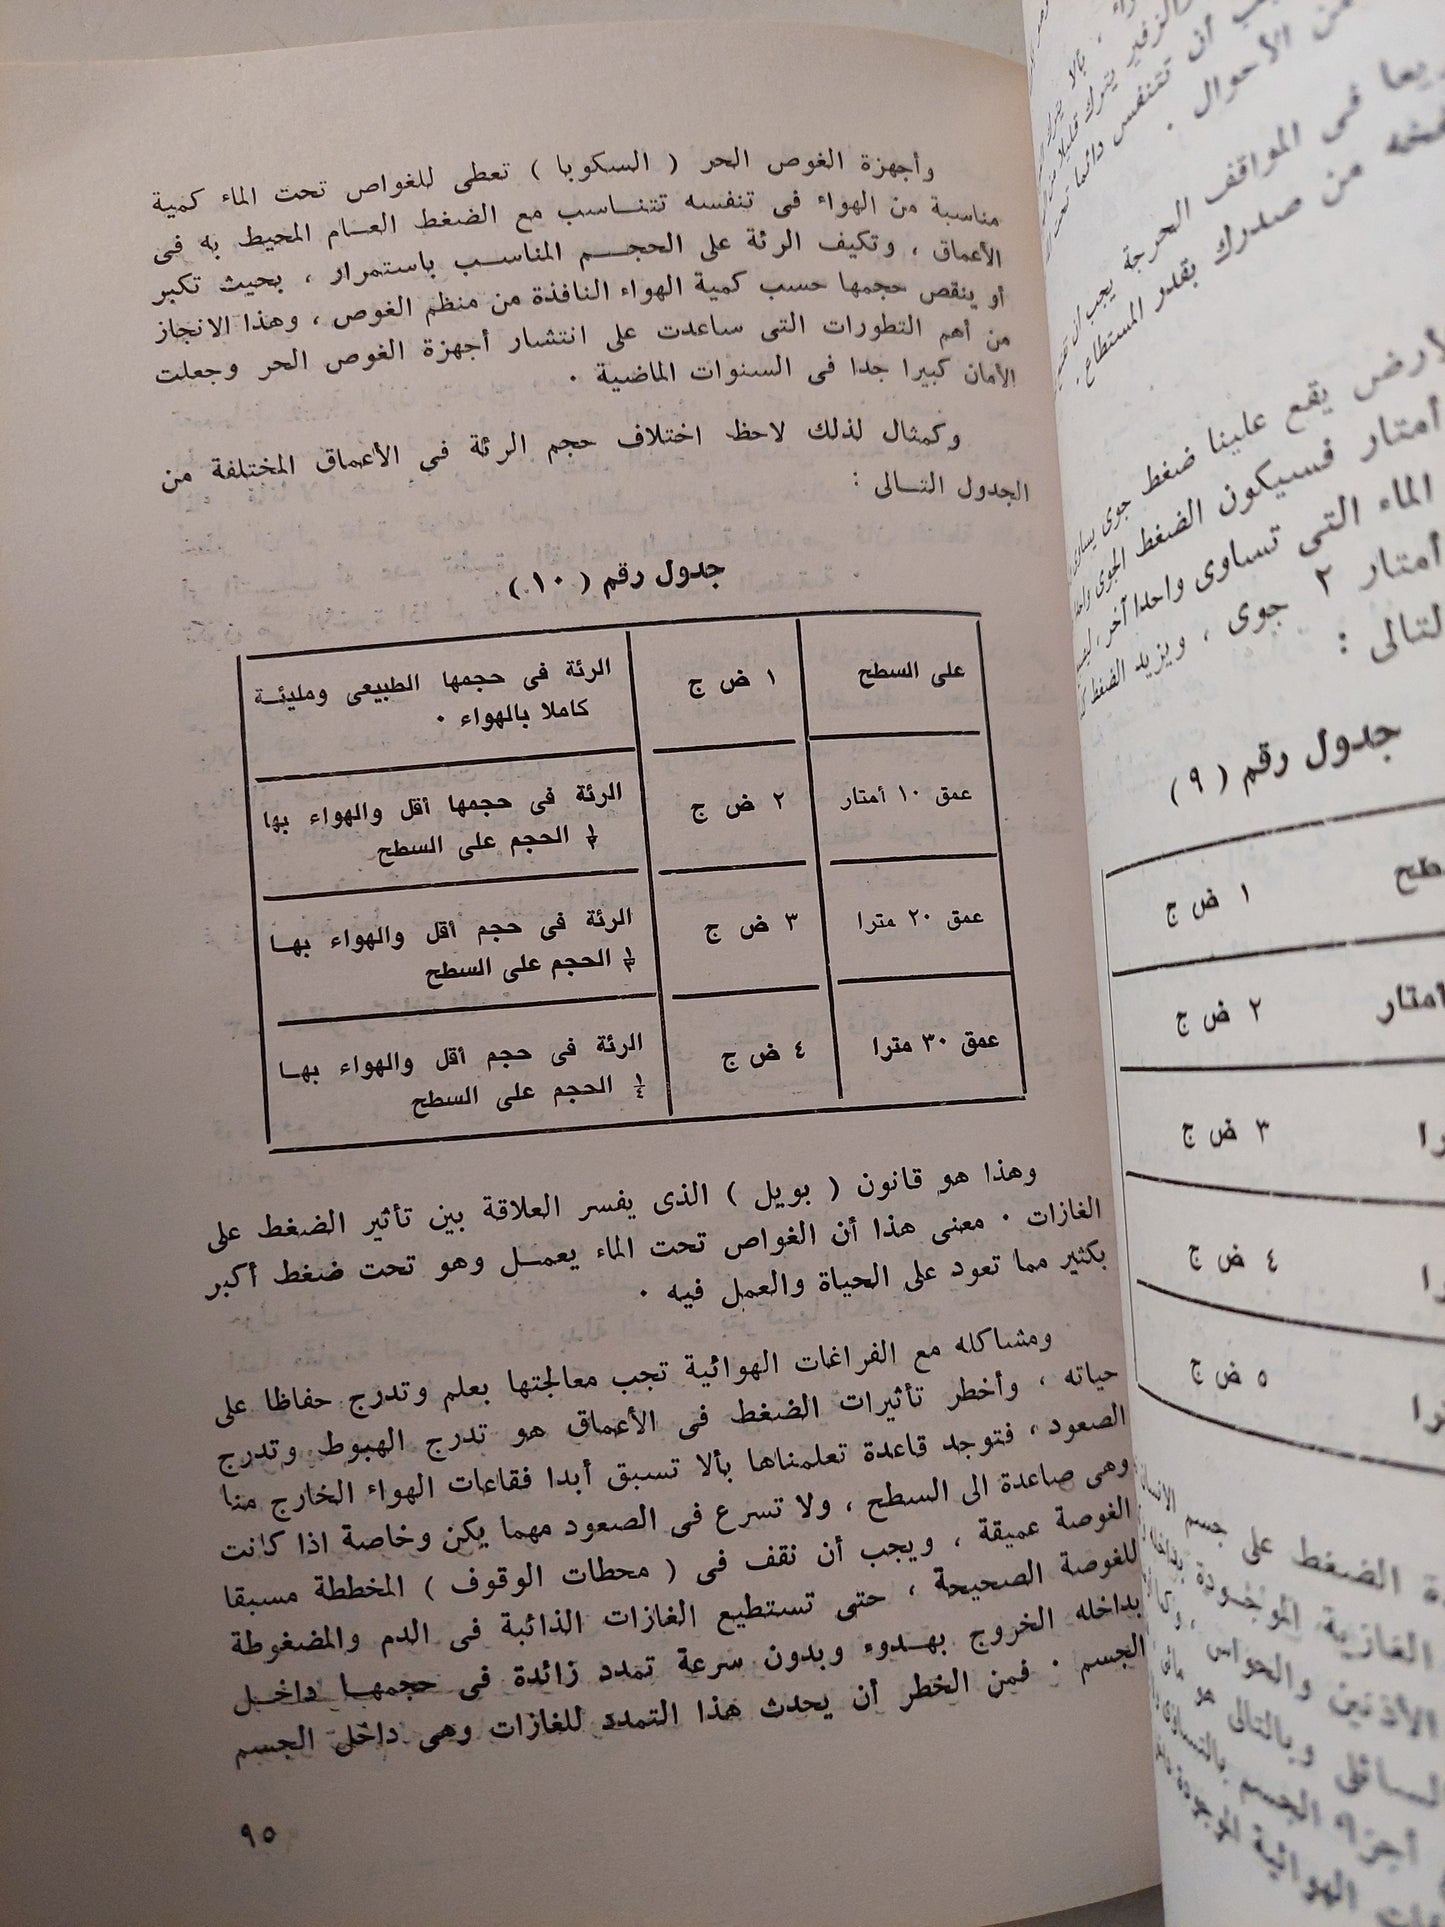 وأجهزة الغوص الحر ( السكوبا ) تعطى للغواص تحت الماء كمية
مناسبة من الهواء فى تنفسه تتناسب مع الضغط العام المحيط به فى
الأعماق ، وتكيف الرئة على الحجم المناسب باستمرار ، بحيث تكبر
أو ينقص حجمها حسب كمية الهواء النافذة من منظم الغوص ، وهذا الانجاز
من أهم التطورات التى ساعدت على انتشار أجهزة الغوص الحر وجعلت
الأمان كبيرا جدا فى السنوات الماضية .
وكمثال لذلك لاحظ اختلاف حجم الرئة فى الأعماق المختلفة من
الجدول التالى :
جدول رقم ( ١٠ )
على السطح
١ ض ج
الرئة فى حجمها الطبيعى ومليئة
كاملا بالهواء .
عمق ١٠ أمتار
٢ ض ج
الرئة فى حجمها أقل والهواء بها
½ الحجم على السطح
عمق ٢٠ مترا
٣ ض ج
الرئة فى حجم أقل والهواء بها
⅓ الحجم على السطح
عمق ٣٠ مترا
٤ ض ج
الرئة فى حجم أقل والهواء بها
¼ الحجم على السطح
وهذا هو قانون ( بويل ) الذى يفسر العلاقة بين تأثير الضغط على
الغازات . معنى هذا أن الغواص تحت الماء يعمل وهو تحت ضغط أكبر
بكثير مما تعود على الحياة والعمل فيه .
ومشاكله مع الفراغات الهوائية تجب معالجتها بعلم وتدرج حفاظا على
حياته ، وأخطر تأثيرات الضغط فى الأعماق هو تدرج الهبوط وتدرج
الصعود ، فتوجد قاعدة تعلمناها بألا تسبق أبدا فقاعات الهواء الخارج منا
وهى صاعدة الى السطح ، ولا تسرع فى الصعود مهما يكن وخاصة اذا كانت
الغوصة عميقة ، ويجب أن نقف فى ( محطات الوقوف ) المخططة مسبقا
للغوصة الصحيحة ، حتى تستطيع الغازات الذائبة فى الدم والمضغوطة
بداخله الخروج بهدوء وبدون سرعة تمدد زائدة فى حجمها داخل
الجسم . فمن الخطر أن يحدث هذا التمدد للغازات وهى داخل الجسم
٩٥
من الأحوال .
فى المواقف الحرجة يجب أن
من صدرك بقدر المستطاع .
يقع علينا ضغط جوى يساوى
أمتار فسيكون الضغط الجوى
الماء التى تساوى واحدا آخر
أمتار ٢ جوى ، ويزيد الضغط
لتالى :
جدول رقم ( ٩ )
١ ض ج
أمتار
٢ ض ج
٣ ض ج
٤ ض ج
٥ ض ج
الضغط على جسم الانسان
الغازية الموجودة
الأذنين والحواس
وبالتالى هو
الجسم
الهوائية